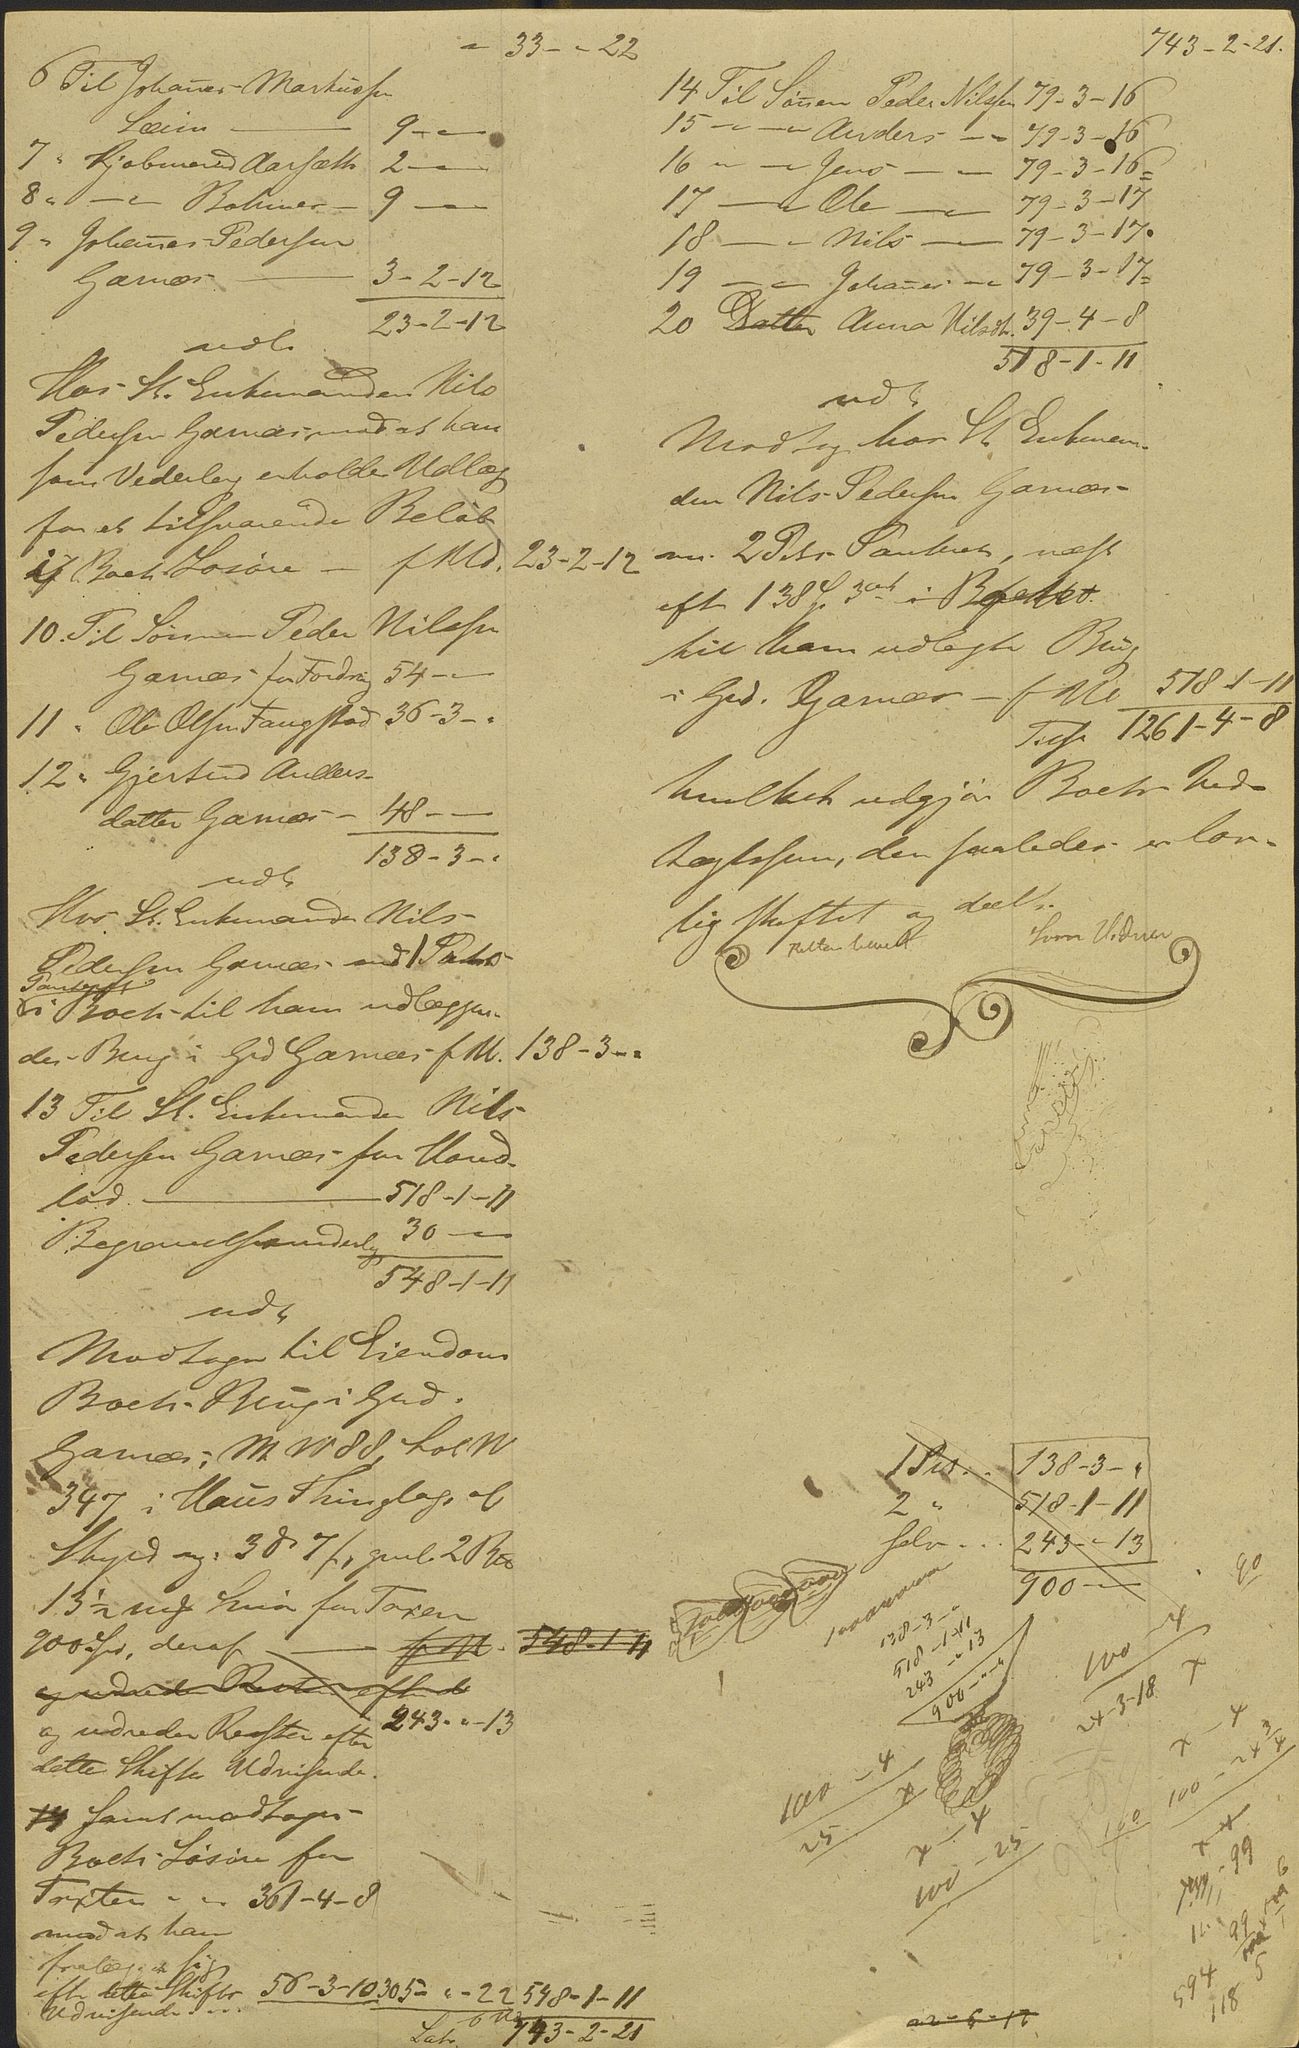 " 33 - " 22
6 Til Johannes Markussen
Leim 9 - "
7 " Kjøbmand Aarsæth 2 - "
8 " - " Bøhmer - 9 - "
9 " Johannes Pedersen
Garnæs 3 - 2 - 12
23 - 2 - 12
udl.
Hos St. Enkemanden Nils
Pedersen Garnæs, mod at han
som Vederlag erholder Udlæg
for et tilsvarende Beløb
i Boets Løsøre - f Ud. 23-2-12
10. Til Sønnen Peder Nilssen
Garnæs for Fordring 54 - "
11 " Ole Olsen Faugstad 36-3- "
12 " Gjertrud Anders-
datter Garnæs - 48 - "
138-3- "
udl.
Hos St. Enkemanden Nils
Pedersen Garnæs med 1 Prts
Panteret
i Boets til ham udlæggen-
des Brug i Grd Garnæs f Ud. 138-3- "
13 Til St. Enkemanden Nils
Pedersen Garnæs for Hoved-
lod 518-1-11
Begravelsesvederlag 30 - "
548-1-11
udl.
Modtager til Eiendom
Boets Brug i Grd.
Garnæs, M. No 88, Løb No
347 i Haus Thinglag af
Skyld ny: 3 d 7 s, gml. 2
13½ mrk for Taxen
900 Spd, deraf f Ud. 548-1-11
og udreder Resten efter d
og udreder Resten efter 243 - " - 13
dette Skiftes Udvisende.
14 samt modtager
Boets Løsøre for
Taxten " " 361-4-8
mod at han
efter dette Skiftes 56-3-10 305 - " - 22 548-1-11
Udvisende
Lat. 743-2-21
743-2-21.
14 Til Sønnen Peder Nilssen 79-3-16
15 - " - " Anders - " 79-3-16
16 " - " Jens - " 79-3-16
17 - " Ole - " 79-3-17
18 - " Nils - " 79-3-17
19 - " Johannes - " 79-3-17
20 Datter Anna Nilsdtr. 39-4-8
518-1-11
udl.
Modtag hos St Enkeman-
den Nils Pedersen Garnæs
m. 2 Prts Panteret, næst
efter 138 Sp. 3 ort i Boets
til ham udlagte Brug
i Grd. Garnæs - f Ud 518-1-11
Tilsr 1261-4-8
hvilket udgjør Boets Ind-
tægtssum, den saaledes er lov-
lig skiftet og deelt.
Retten hævet
Som Vidner
1 Prts .. 138-3- "
2 " 518-1-11
Selv ... 243 - " - 13
900 - "
138-3- "
518-1-11
243 - " 13
900 - " - "
90
100 - 4
24-3-18 x
100 - 4
25 x
x - 4
100 - 25
x - 4
100 - 24 3/4
100
99
594
118
5